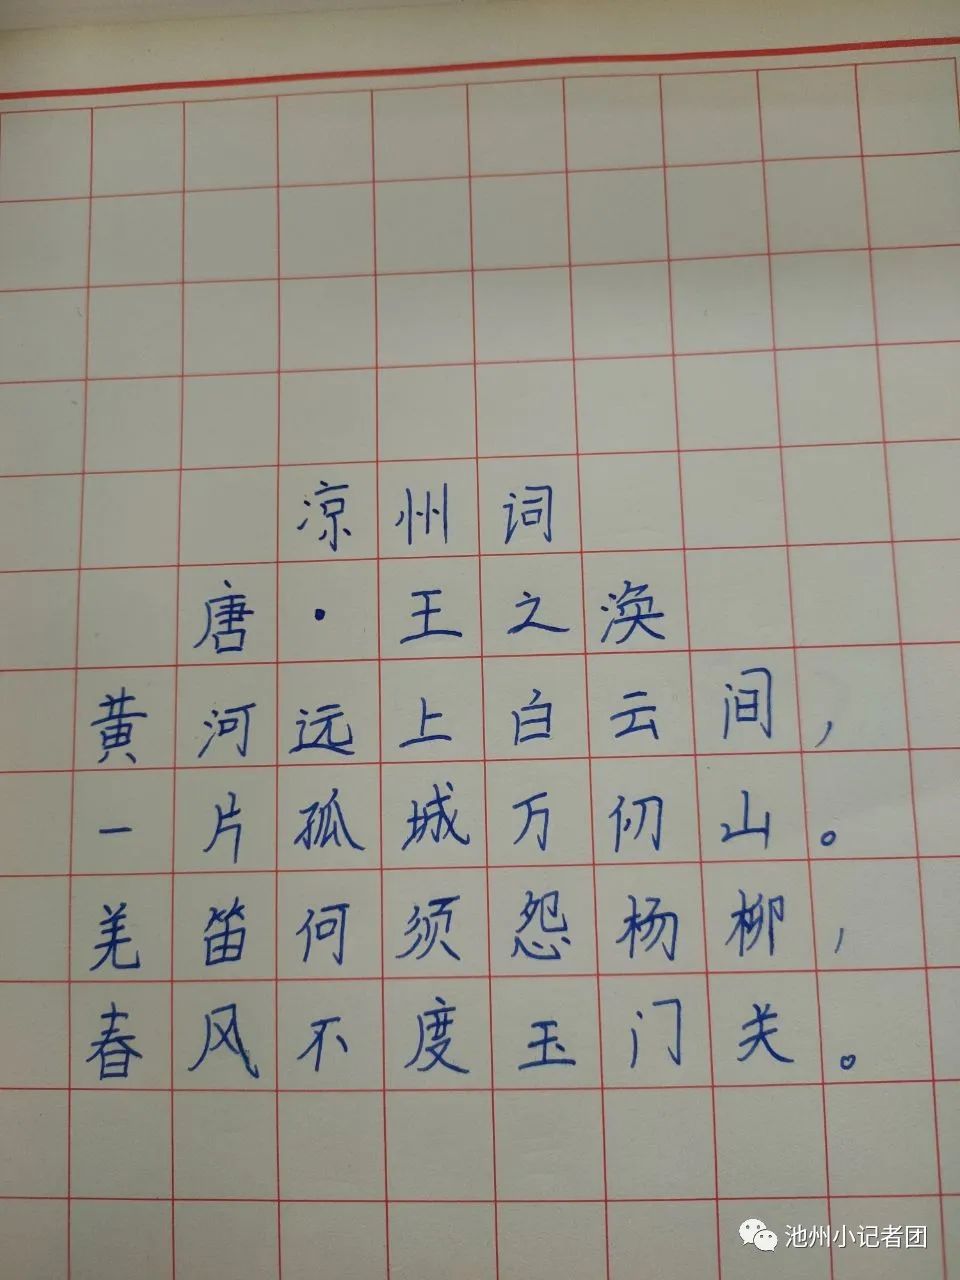 凉州词
唐·王之涣
黄河远上白云间，
一片孤城万仞山。
羌笛何须怨杨柳，
春风不度玉门关。
池州小记者团